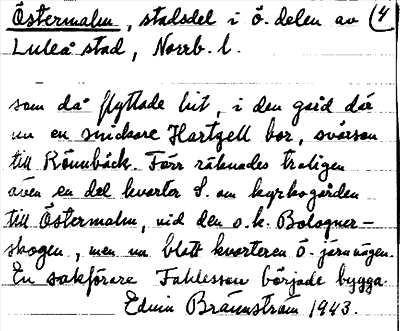 Östermalm, stadsdel i ö. delen av (4
Luleå stad, Norrb. l.
som då flyttade hit, i den gård där
nu en snickare Hartzell bor, svärson
till Rönnbäck. Förr räknades troligen
även en del kvarter S. om kyrkogården
till Östermalm, vid den s.k. Bologner-
skogen, men nu blott kvarteren ö. järnvägen.
En sakförare Fahlesson började bygga.
Edvin Brännström 1943.